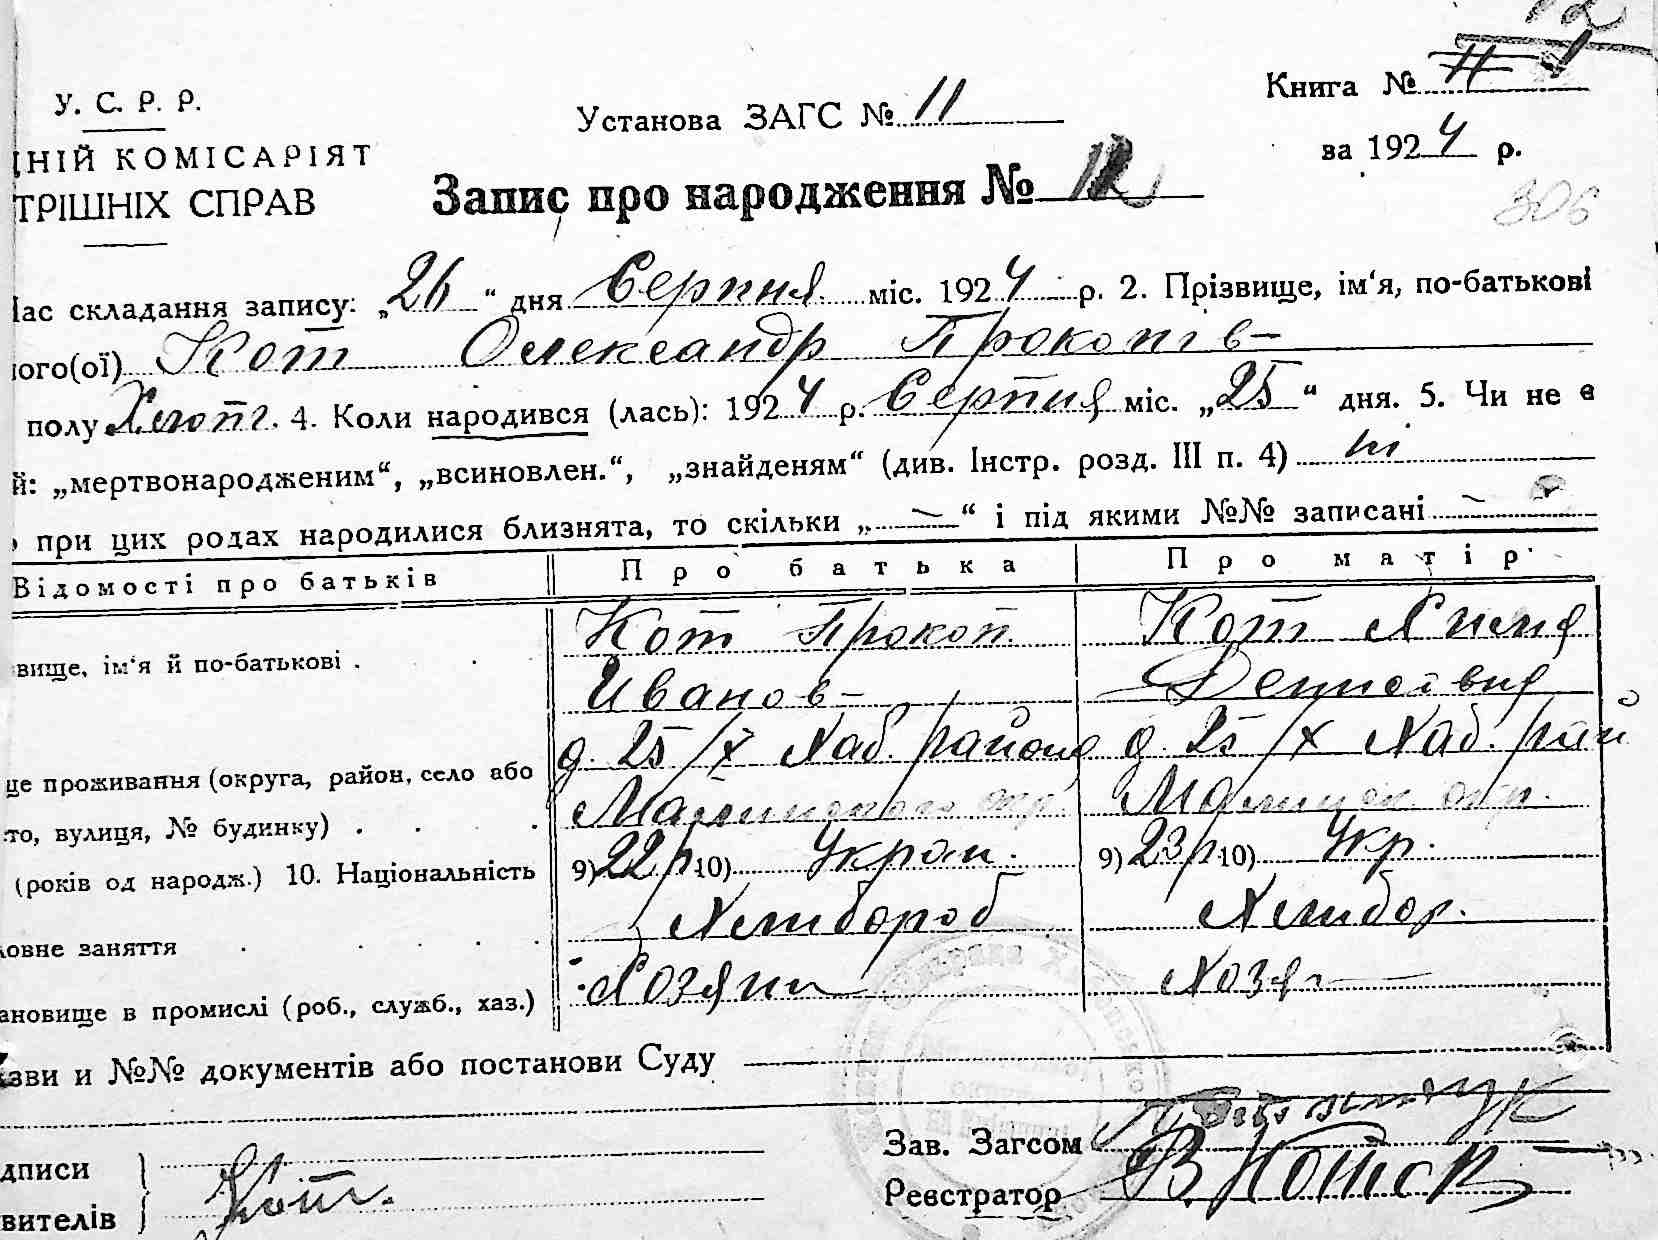 12
У. С. Р. Р. Установа ЗАГС № 11 Книга № 1
НІЙ КОМІСАРІЯТ за 1924 р.
ТРІШНІХ СПРАВ Запис про народження № 12
306
ас складання запису: „26“ дня Серпня міс. 1924 р. 2. Прізвище, ім‘я, по-батькові
ого(ої) Кот Олександр Прокопів-
полу Хлопч. 4. Коли народився (лась): 1924 р. Серпня міс. „25“ дня. 5. Чи не є
й: „мертвонародженим“, „всиновлен.“, „знайденям“ (див. Інстр. розд. III п. 4) ні
при цих родах народилися близнята, то скільки „—“ і під якими №№ записані —
Відомості про батьків Про батька Про матір
Кот Прокоп Кот
вище, ім‘я й по-батькові . Иванов-
д. 25/X Хаб. района д. 25/X Хаб. рай
це проживання (округа, район, село або
то, вулиця, № будинку) . Малинского окр. Малинск. окр.
(років од народж.) 10. Національність 9) 22 р 10) Украи. 9) 23 р 10) Укр.
овне заняття Хлибороб Хлибор.
ановище в промислі (роб., служб., хаз.) Хозяин Хозя-
зви и №№ документів або постанови Суду
Зав. Загсом
дписи Кот.
вителів Реєстратор